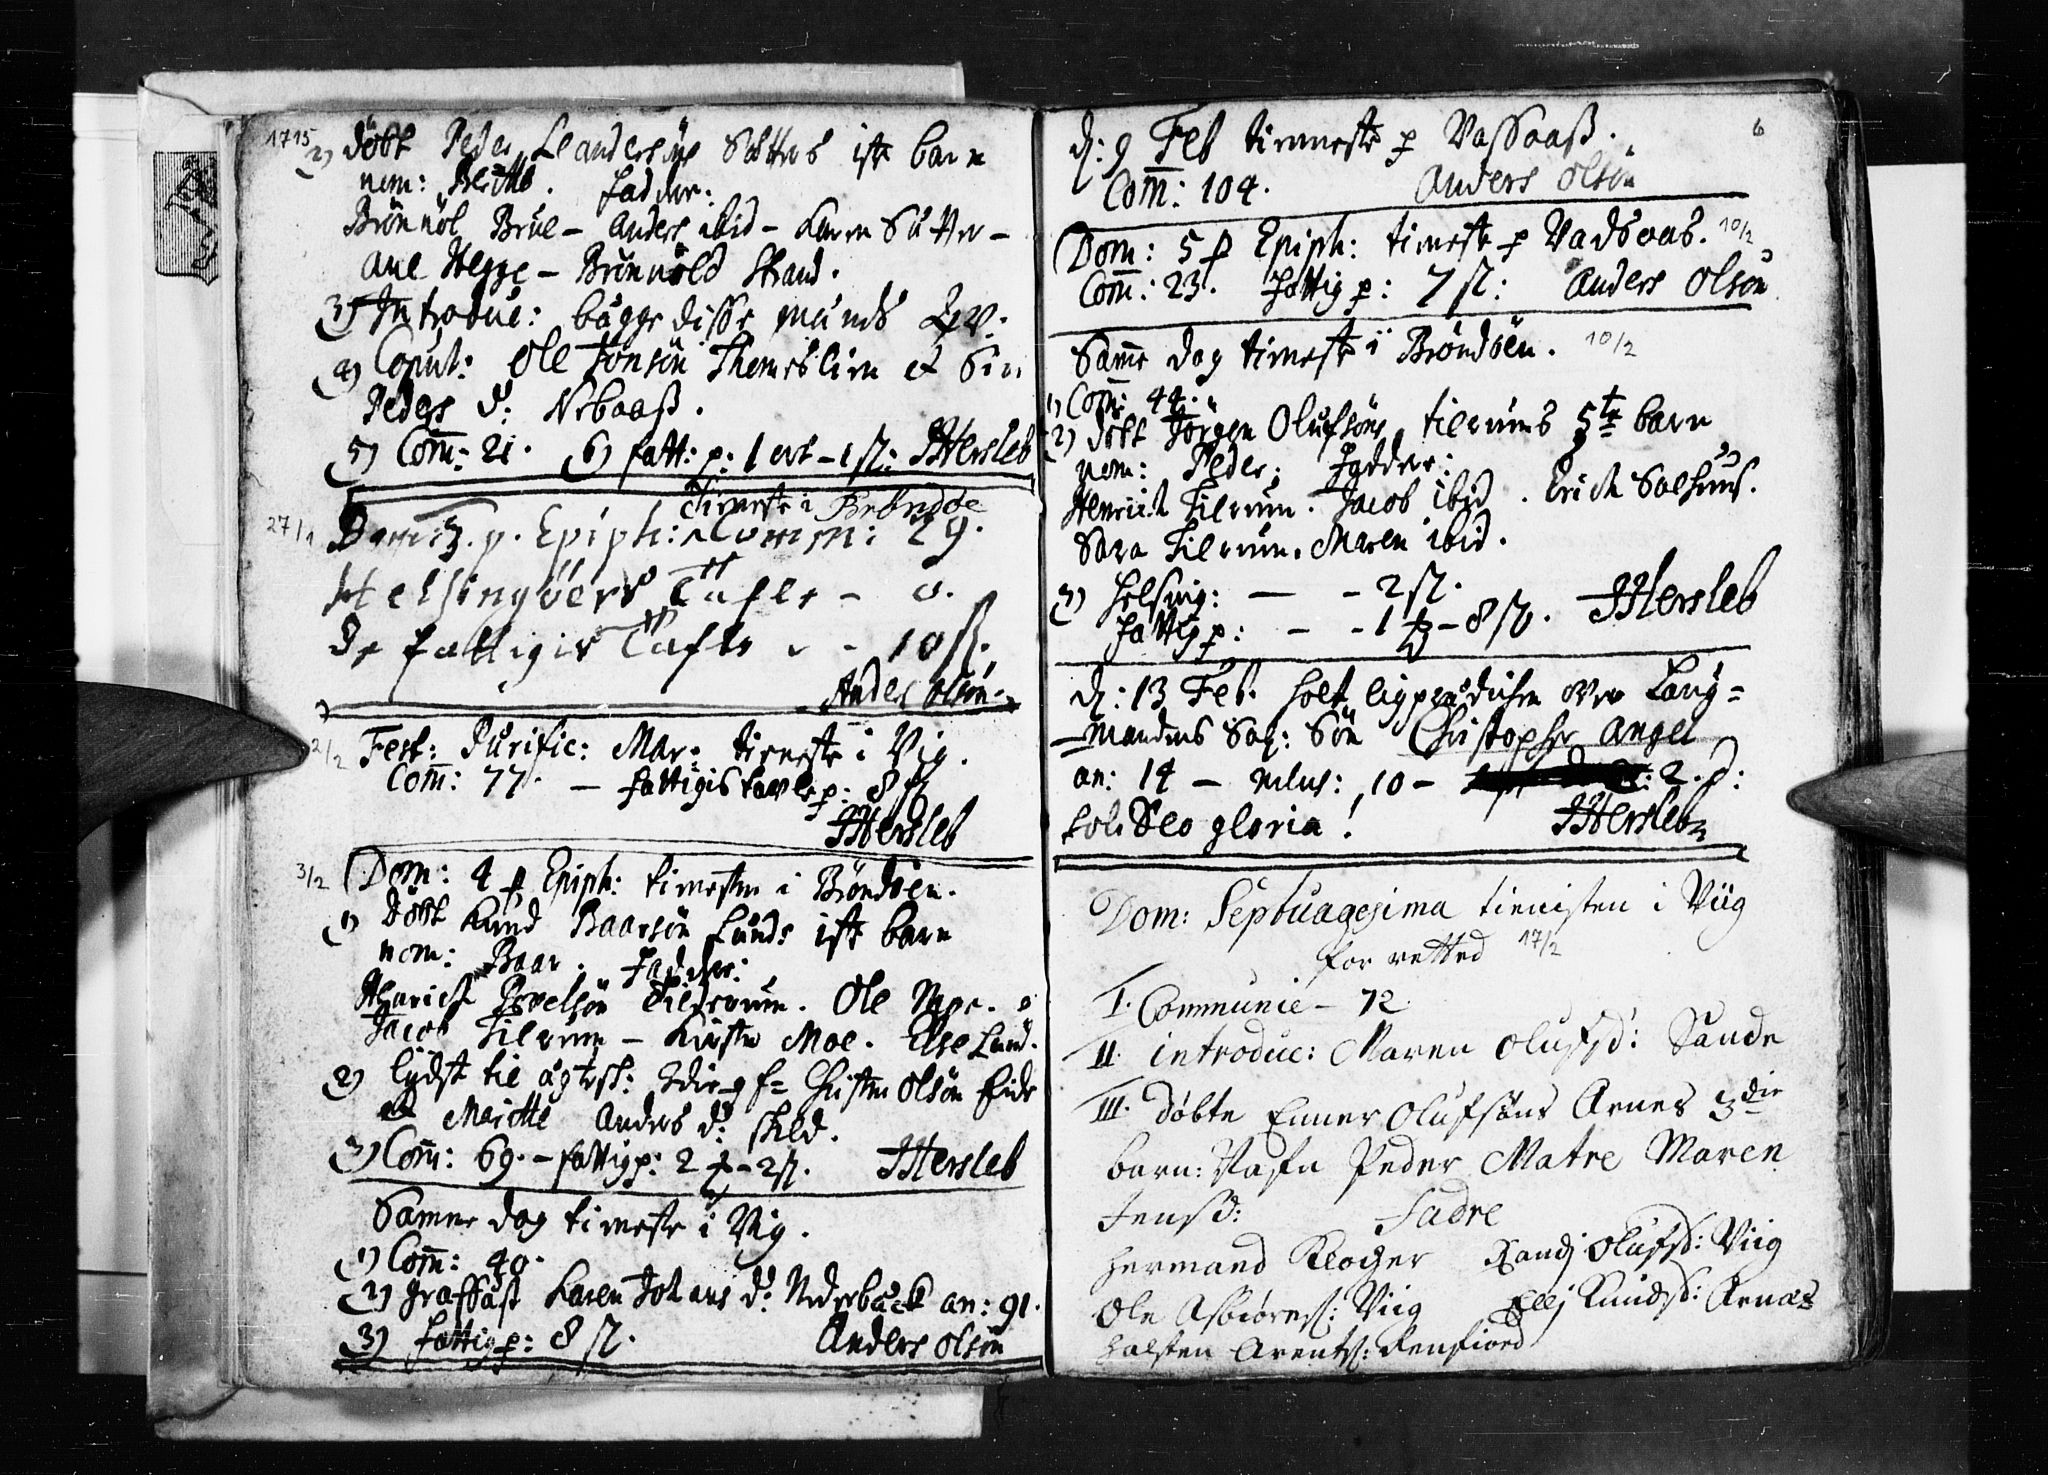 1715
2) döbt Peder Leandersöns Sættres 1ste barn
nom: Biritte. fadder:
Brönnöl Brue - Anders ibid - Karen Sættre -
Ane Hegge - Brönnöld Strand.
3) Introduc: begge disse mænds Qv:
4) Copul: Ole Jonsön Thomeslien et Siri
Peders d: Nebaass.
5) Com: 21. 6) fatt: p: 1 ort - 1 sz: JHersleb
Tieneste i Bröndöe
27/1 Dom: 3. p. Epiph: Comm: 29.
Helsingöers Tafle - 0.
De fattigis Tafle - - 10 ss.
Anders Olsön.
2/2 Fest: Purific: Mar: tieneste i Vig.
Com: 77. - fattigis tavle p: 8 sz
JHersleb
3/2 Dom: 4 p Epiph: tienesten i Bröndöen.
1) döbt Knud Baarsön Lunds 1ste barn
nom: Baar. fadder:
Henrich Povelsön Tilrum. Ole
Jacob Tilrum - Kirsten Moe. Else Lund.
2) lydst til ægtesk: 3die g f= Christen Olsön Eide
Maritte Anders d: Skild.
3) Com: 69. - fattig p: 2 - 2 sz. JHersleb
Samme dag tieneste i Vig.
1) Com: 40.
2) Graffæst Karen Johans d: Nederbäck an: 91.
3) fattig p: 8 sz. Anders Olsön
6
d: 9 Feb tieneste p Vassaass.
Com: 104. Anders Olsön
Dom: 5 p Epiph: tieneste p Vadsaas. 10/2
Com: 23. fattig p: 7 sz: Anders Olsön
Samme dag tieneste i Bröndöen. 10/2
1) Com: 44.
2) döbt Jörgen Olufsöns tilrums 5te barn
nom: Peder; Fadder:
Henrich Tilrum. Jacob ibid. Erich Salhuus.
Sara Tilrum. Maren ibid.
3) helsing: - - 2 sz.
fattig p: - - 1 - 8 sz. JHersleb
d: 13 Feb. holt ligprædichen over Laug=
mandens Sal: Sön Christopher Angel
an: 14 - mens: 10 - 2. d:
soli Deo gloria! JHersleb
Dom: Septuagesima tienisten i Viig
forretted 17/2
I. Communic - 72
II. introduc: Maren Olufsd: Sande
III. Döbte Enner Olufsöns Arnes 3die
barn: Nafn Peder Matre Maren
Jensd: Fadre
Hermand Klocher Randj Olufsd: Viig
Ole Asbiörns: Viig Ellj Knudsd: Arnæs
Halsten Arents: Renfiord